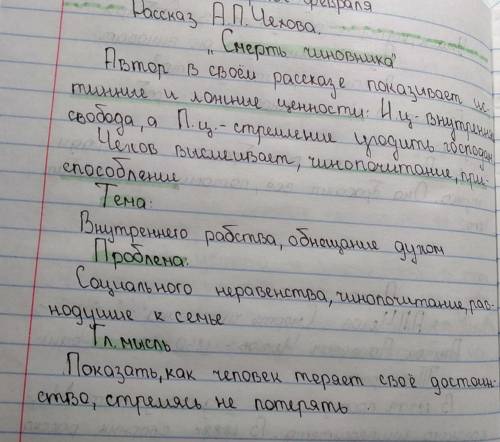 февраля
Рассказ А.П. Чехова.
„Смерть чиновника"
Автор в своём рассказе показывает ис-
тинные и ложные ценности: И.ц- внутрення
свобода, а Л.ц.- стремление угодить господам
Чехов высмеивает, чинопочитание, при-
способление
Тема:
Внутреннего рабства, обнещание духом
Проблема:
Социального неравенства, чинопочитание, рав-
нодушие к семье
Гл. мысль
Показать, как человек теряет своё достоин-
ство, стремясь не потерять